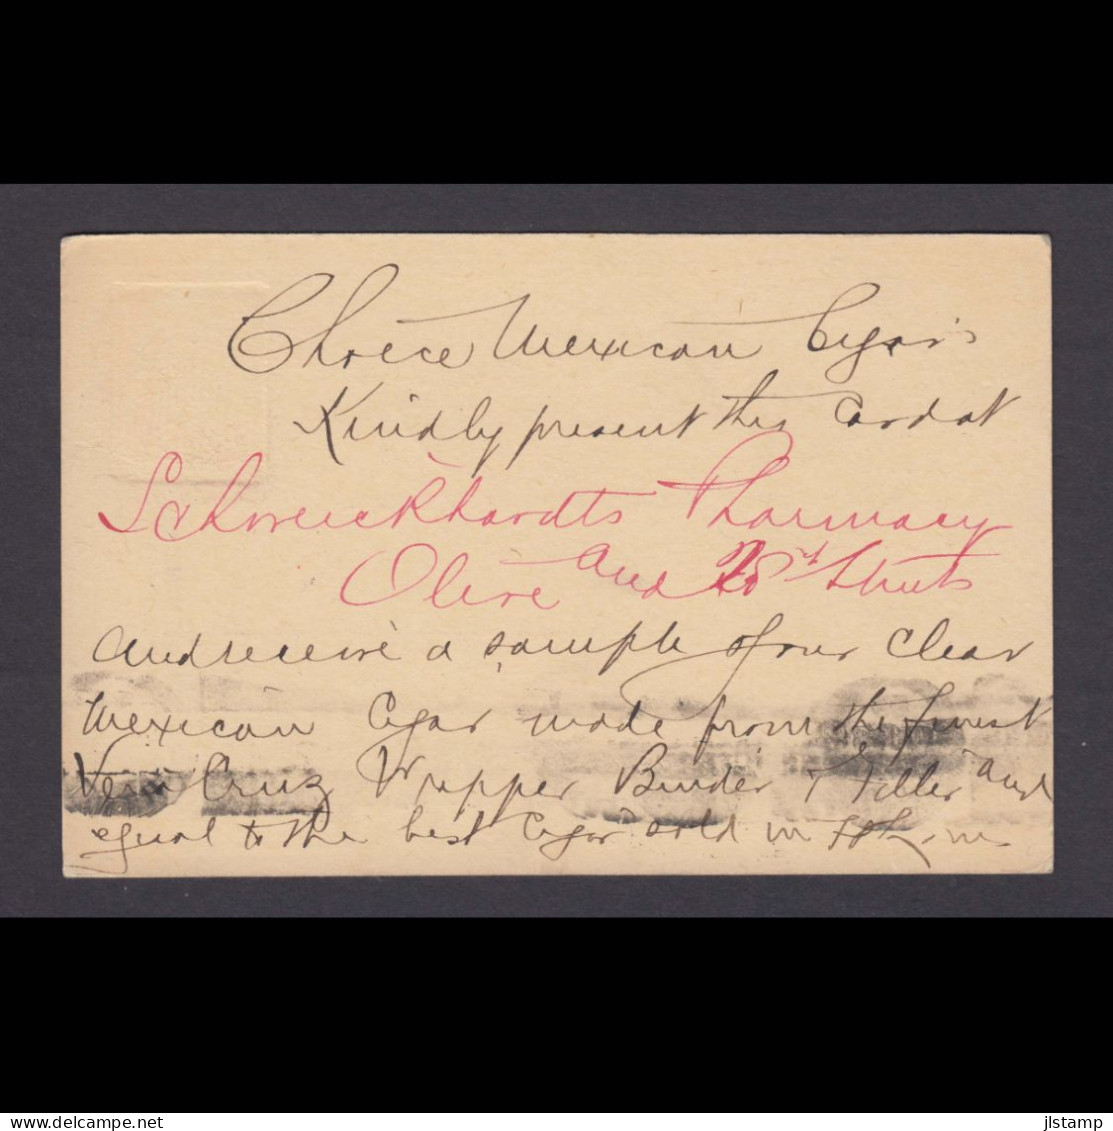 Choice Mexican Cigars
Kindly present this Card at
Schweickhardts Pharmacy
Olive and Streets
and receive a sample of our Clear
Mexican Cigar made from the finest
Vera Cruz Wrapper Binder & Filler and
equal to the best Cigar sold in
delcampe.net
jlstamp